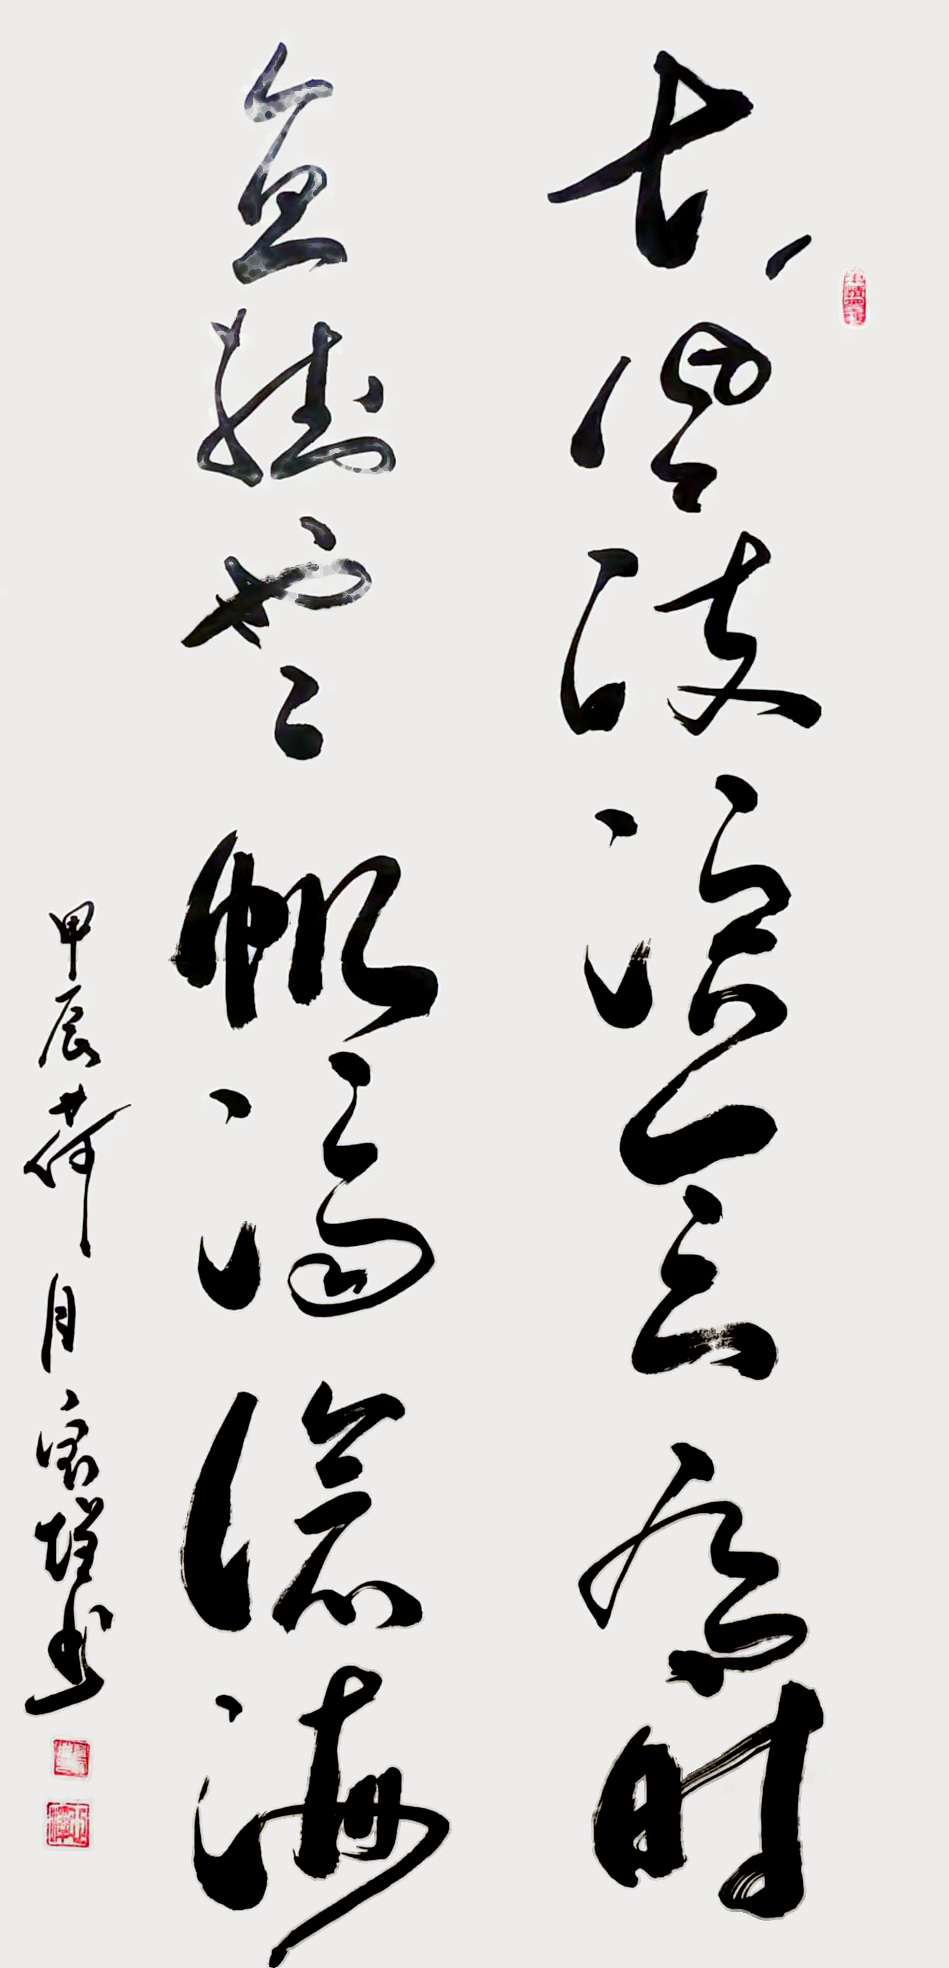 长风破浪会有时
直挂云帆济沧海
甲辰荷月